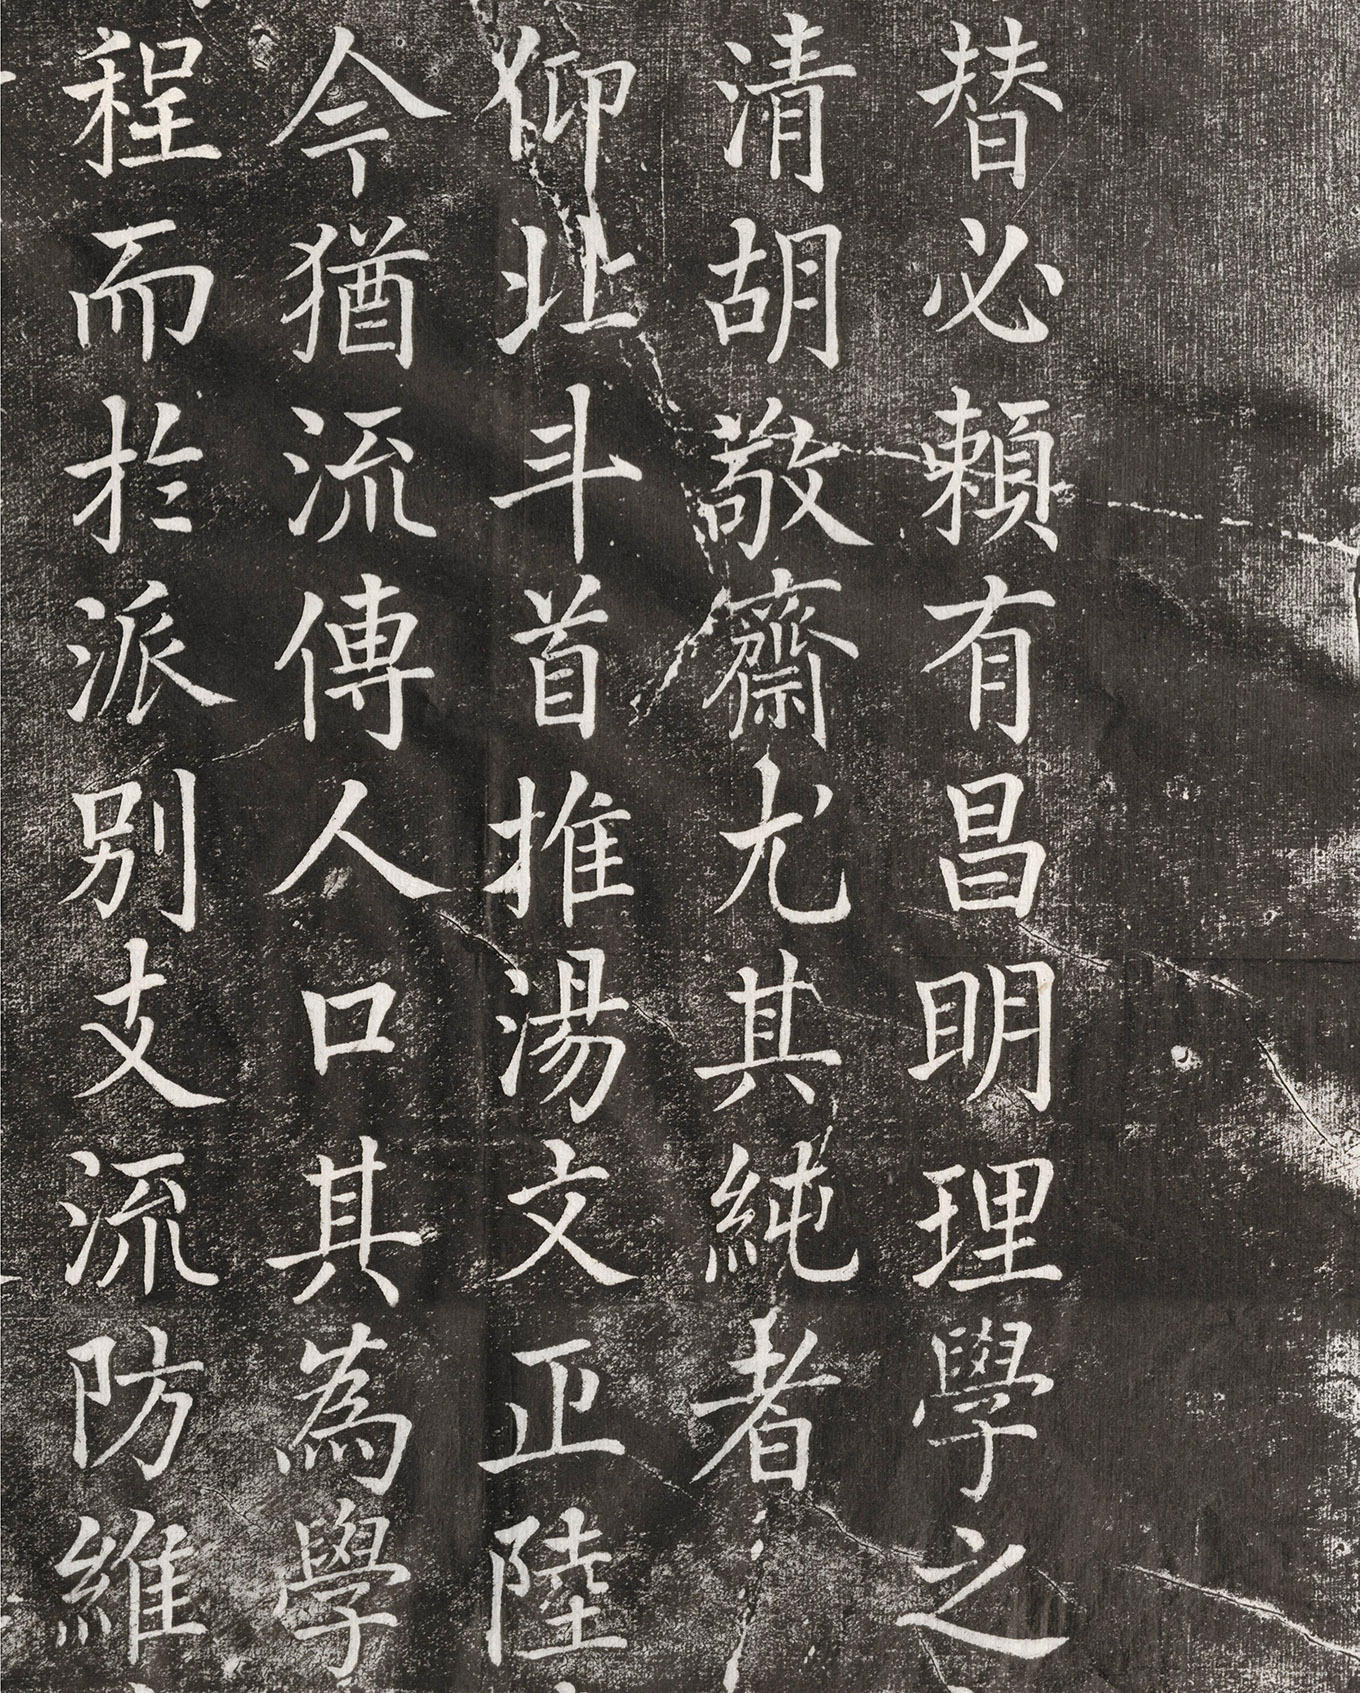 替必賴有昌明理學之
清胡敬齋尤其純者
仰北斗首推湯文正陸
今猶流傳人口其為學
程而於派別支流防維